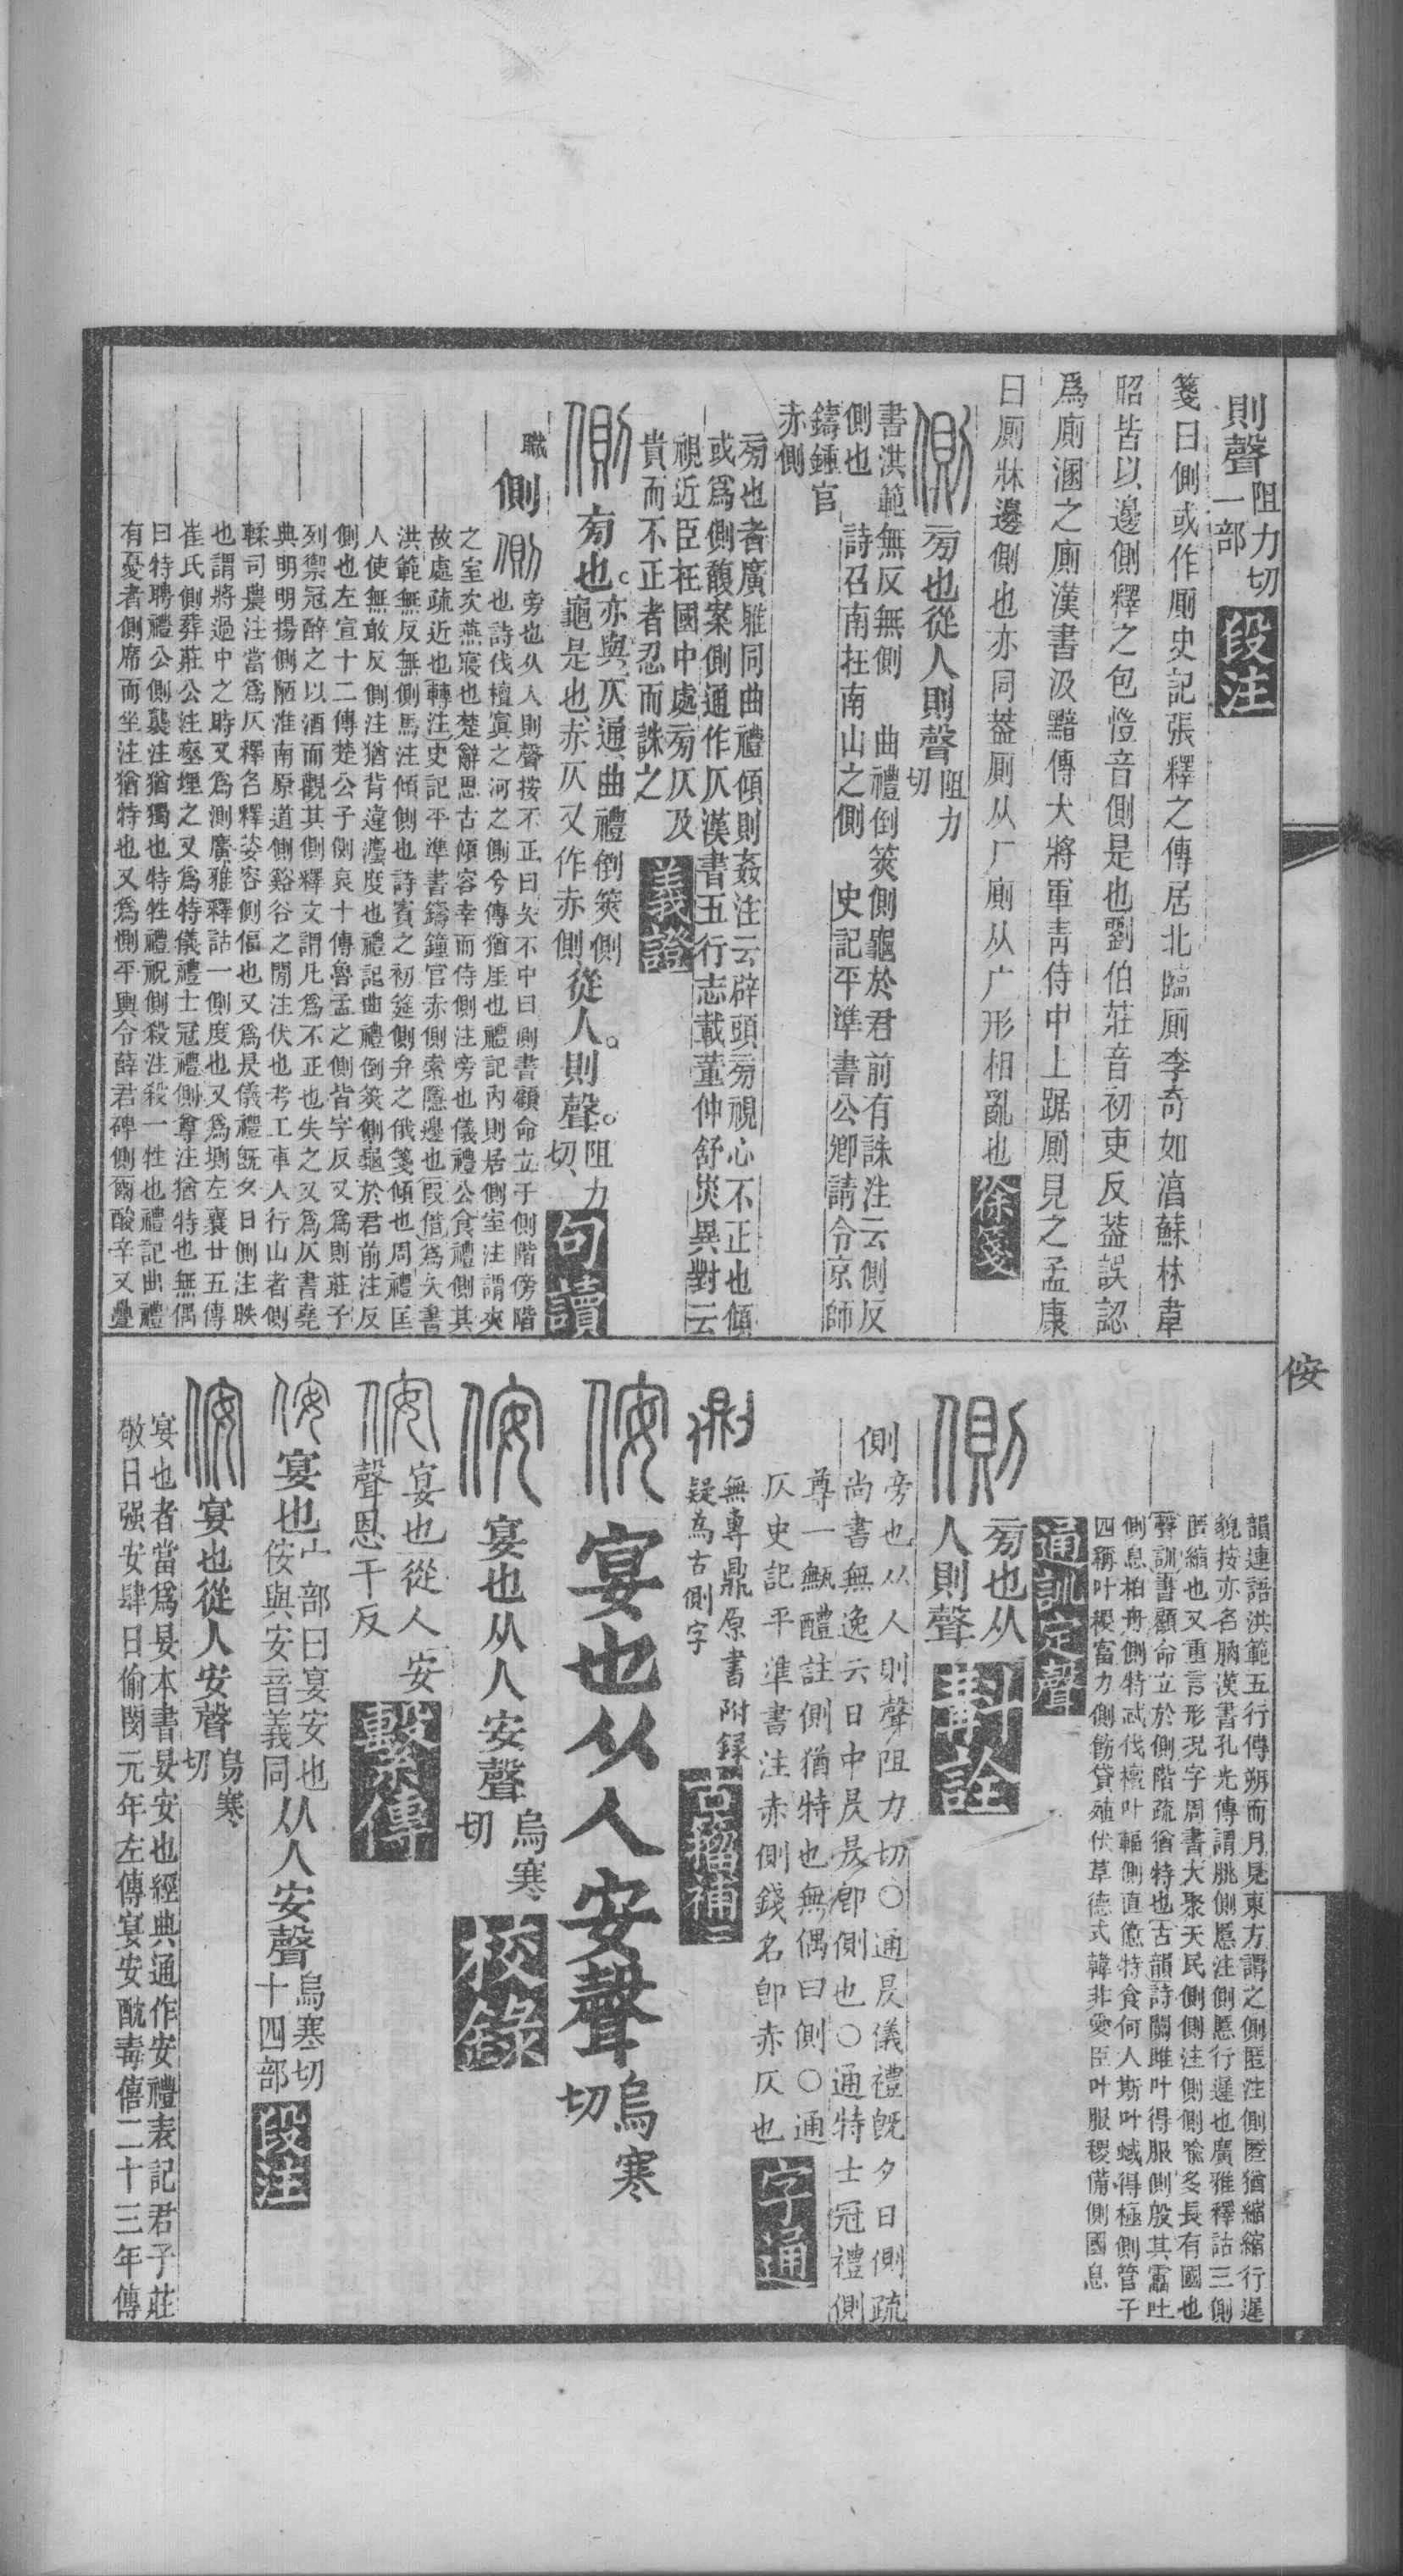 則聲
阻力切
一部
段注
箋曰側或作厠史記張釋之傳居北臨厠李奇如湻蘇林韋
昭皆以邊側釋之包愷音側是也劉伯莊音初吏反葢誤認
爲廁溷之廁漢書汲黯傳大將軍青侍中上踞厠見之孟康
曰厠牀邊側也亦同葢厠从厂廁从广形相亂也
徐箋
側
旁也從人則聲
阻力
切
書洪範無反無側
曲禮倒筴側龜於君前有誅注云側反
側也
詩召南在南山之側
史記平準書公卿請令京師
鑄鍾官
赤側
旁也者廣雅同曲禮傾則姦注云辟頭旁視心不正也傾
或爲側馥案側通作仄漢書五行志載董仲舒災異對云
視近臣在國中處旁仄及
貴而不正者忍而誅之
義證
側
旁也。
亦與仄通曲禮倒筴側
龜是也赤仄又作赤側
從人。則聲。
阻力
切、
句讀
職
側
側
旁也从人則聲按不正曰夨不中曰側書顧命立于側階傍階
也詩伐檀寘之河之側今傳猶厓也禮記內則居側室注謂夾
之室次燕寢也楚辭思古傾容幸而侍側注旁也儀禮公食禮側其
故處疏近也轉注史記平準書鑄鐘官赤側索隱邊也叚借爲夨書
洪範無反無側馬注傾側也詩賓之初筵側弁之俄箋傾也周禮匡
人使無敢反側注猶背違灋度也禮記曲禮倒筴側龜於君前注反
側也左宣十二傳楚公子側哀十傳魯孟之側皆字反又爲則莊子
列禦冠醉之以酒而觀其側釋文謂凡爲不正也失之又爲仄書堯
典明明揚側陋淮南原道側谿谷之閒注伏也考工車人行山者側
輮司農注當爲仄釋名釋姿容側偪也又爲昃儀禮旣夕日側注昳
也謂將過中之時又爲測廣雅釋詁一側度也又爲堲左襄廿五傳
崔氏側葬莊公注瘞埋之又爲特儀禮士冠禮側尊注猶特也無偶
曰特聘禮公側襲注猶獨也特牲禮視側殺注殺一牲也禮記曲禮
有憂者側席而坐注猶特也又爲惻平輿令薛君碑側爾酸辛又疊
韻連語洪範五行傳朔而月見東方謂之側匿注側匿猶縮縮行遲
貌按亦名朒漢書孔光傳謂朓側慝注側慝行遲也廣雅釋詁三側
匿縮也又重言形況字周書大聚天民側側注側側喩多長有國也
聲訓書顧命立於側階疏猶特也古韻詩關雎叶得服側殷其靁叶
側息柏舟側特忒伐檀叶輻側直億特食何人斯叶蜮得極側管子
四稱叶稷富力側飭貸殖伏革德式韓非愛臣叶服稷備側國息
通訓定聲
側
旁也从
人則聲
斠詮
側
旁也从人則聲阻力切○通昃儀禮旣夕日側疏
尚書無逸云日中昃昃卽側也○通特士冠禮側
尊一甒醴註側猶特也無偶曰側○通
仄史記平準書注赤側錢名卽赤仄也
字通
無專鼎原書附錄
疑爲古側字
古籀補
侒
宴也从人安聲
烏寒
切
侒
宴也从人安聲
烏寒
切
校錄
侒
宴也從人安
聲恩干反
繫傳
侒
宴也
宀部曰宴安也
侒與安音義同
从人安聲
烏寒切
十四部
段注
侒
宴也從人安聲
烏寒
切
宴也者當爲晏本書晏安也經典通作安禮表記君子莊
敬日强安肆日偷閔元年左傳宴安酖毒僖二十三年傳
侒